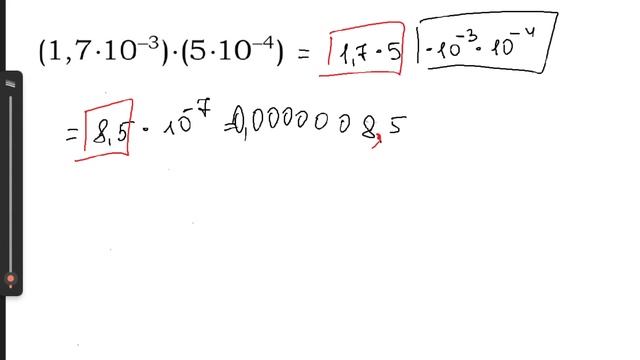 (1,7·10⁻³)·(5·10⁻⁴) = 1,7·5 ·10⁻³·10⁻⁴
= 8,5·10⁻⁷ = 0,000000 8,5